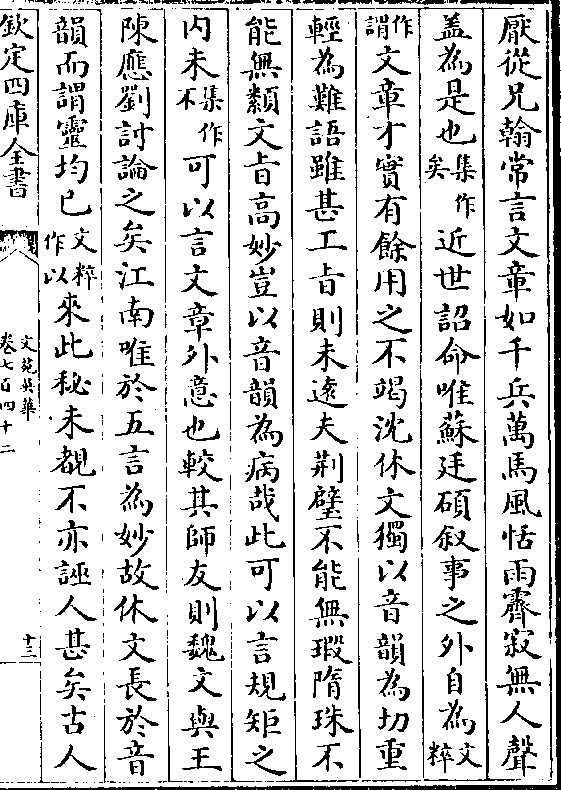 厭從兄翰常言文章如千兵萬馬風恬雨霽寂無人聲
盖為是也集作矣近世詔命唯蘇廷碩叙事之外自為文粹
作謂文章才實有餘用之不竭沈休文獨以音韻為切重
輕為難語雖甚工㫖則未逺夫荆璧不能無瑕隋珠不
能無纇文㫖高妙豈以音韻為病哉此可以言規矩之
内未集作不可以言文章外意也較其師友則魏文與王
陳應劉討論之矣江南唯於五言為妙故休文長於音
韻而謂靈均已文粹作以來此秘未覩不亦誣人甚矣古人
欽定四庫全書
文苑英華
卷七百四十二
十三